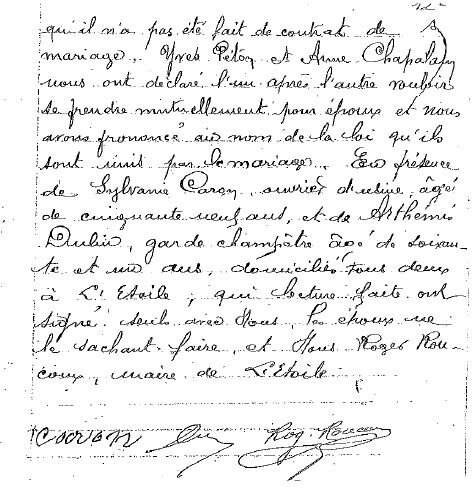 qu'il n'a pas été fait de contrat de
mariage. Yves Pétoq et Anne Chapalain
nous ont déclaré l'un après l'autre vouloir
se prendre mutuellement pour époux et nous
avons prononcé au nom de la loi qu'ils
sont unis par le mariage. En présence
de Sylvanie Caron, ouvrier d'usine, âgé
de cinquante neuf ans, et de Arthémis
Dubin, garde champêtre âgé de soixan-
te et un ans, domiciliés tous deux
à L'Etoile, qui lecture faite ont
signé seuls avec Nous, les époux ne
le sachant faire, et Nous Roger Rou-
coux, maire de L'Etoile.
Caron Rog. Roucoux